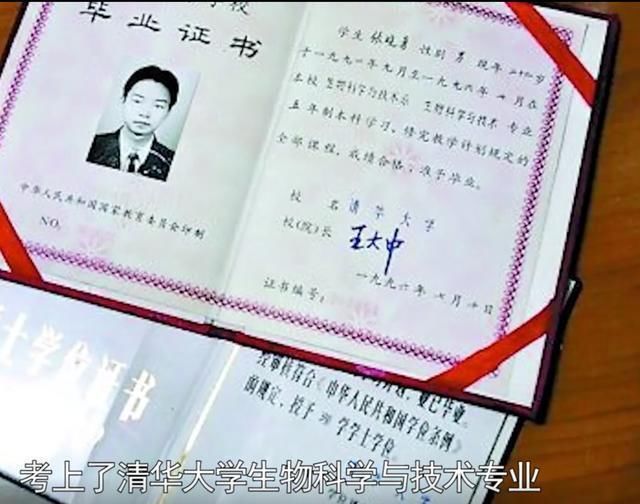 学校
毕业证书
中华人民共和国国家教育委员会印制
NO:
学生 张晓勇 性别 男 现年 二十四岁
于一九九一年九月至一九九六年 七月在
本校 生物科学与技术系 生物科学与技术 专业
五年制本科学习，修完教学计划规定的
全部课程，成绩合格，准予毕业。
校 名 清华大学
校(院)长 王大中
一九九六年 七月 十日
证书编号：
士学位证书
业已毕业。
经审核符合《中华人民共和国学位条例》
的规定，授予 理 学学士学位
考上了清华大学生物科学与技术专业